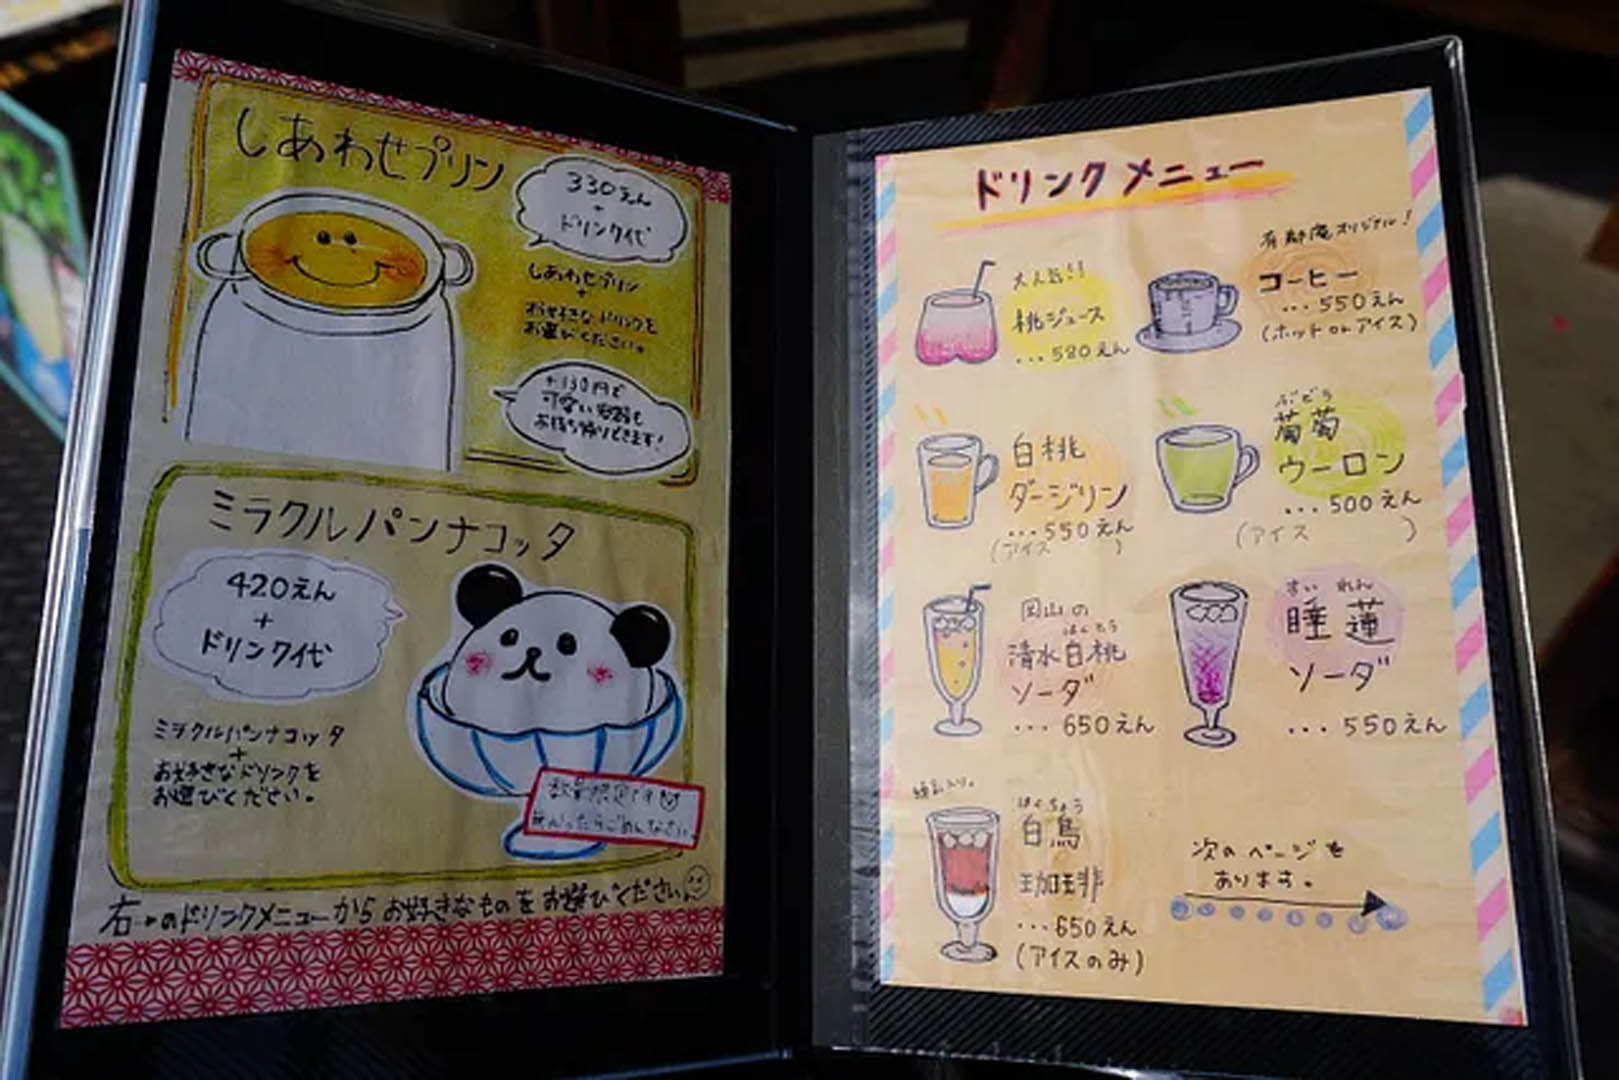 しあわせプリン
330えん
+
ドリンク代
しあわせプリン
+
お好きなドリンクを
お選びください。
+130円で
可愛い容器も
お持ち帰りできます!
ミラクルパンナコッタ
420えん
+
ドリンク代
ミラクルパンナコッタ
+
お好きなドリンクを
お選びください。
数量限定です
無かったらごめんなさい。
右→のドリンクメニューからお好きなものをお選びください
ドリンクメニュー
大人気!!
桃ジュース
...580えん
有鄰庵オリジナル!
コーヒー
...550えん
(ホット or アイス)
白桃
ダージリン
...550えん
(アイス )
ぶどう
葡萄
ウーロン
...500えん
(アイス )
岡山の
はくとう
清水白桃
ソーダ
...650えん
すいれん
睡蓮
ソーダ
...550えん
練乳入り。
はくちょう
白鳥
珈琲
...650えん
(アイスのみ)
次のページも
あります。